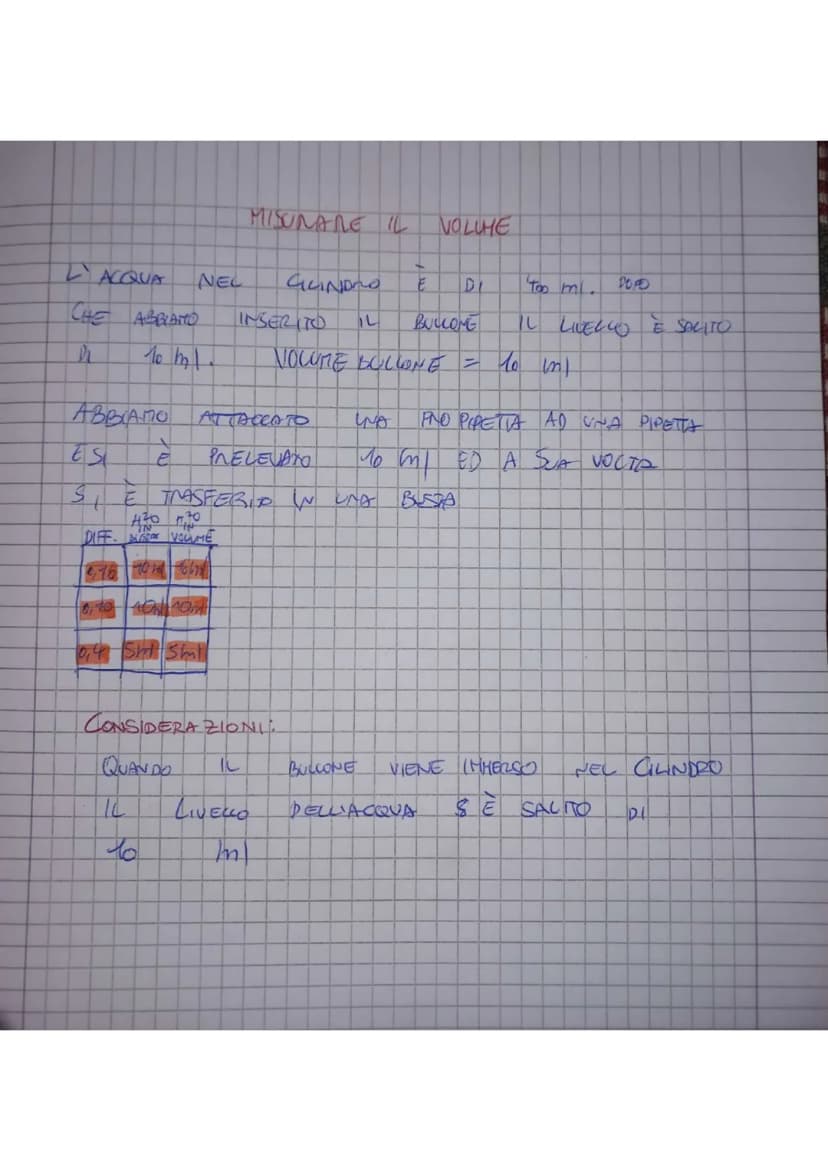 MISURARE IL VOLUME
L'ACQUA NEL CILINDRO È DI 400 ml. DOPO
CHE ABBIAMO INSERITO IL BULLONE IL LIVELLO È SALITO
DI 10 ml. VOLUME BULLONE = 10 ml
ABBIAMO ATTACCATO UNA PROPIPETTA AD UNA PIPETTA
E SI È PRELEVATO 10 ml ED A SUA VOLTA
SI È TRASFERITO IN UNA
H2O IN H2O IN
DIFF. VOLUME
10ml 10ml
0,20 10ml 10ml
0,4 5ml 5ml
CONSIDERAZIONI:
QUANDO IL BULLONE VIENE IMMERSO NEL CILINDRO
IL LIVELLO DELL'ACQUA È SALITO DI
10 ml